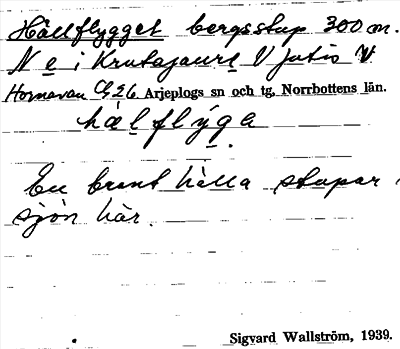 Hällflygget bergsstup 300 m.
N e i Krutajaure V
Hornavan G26 Arjeplogs sn och tg, Norrbottens län.
hälflýga
En brant hälla stupar i
sjön här.
Sigvard Wallström, 1939.